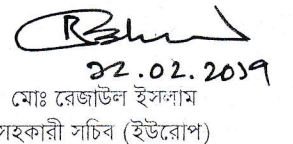 ২২.০২.2019
মোঃ রেজাউল ইসলাম
সহকারী সচিব (ইউরোপ)